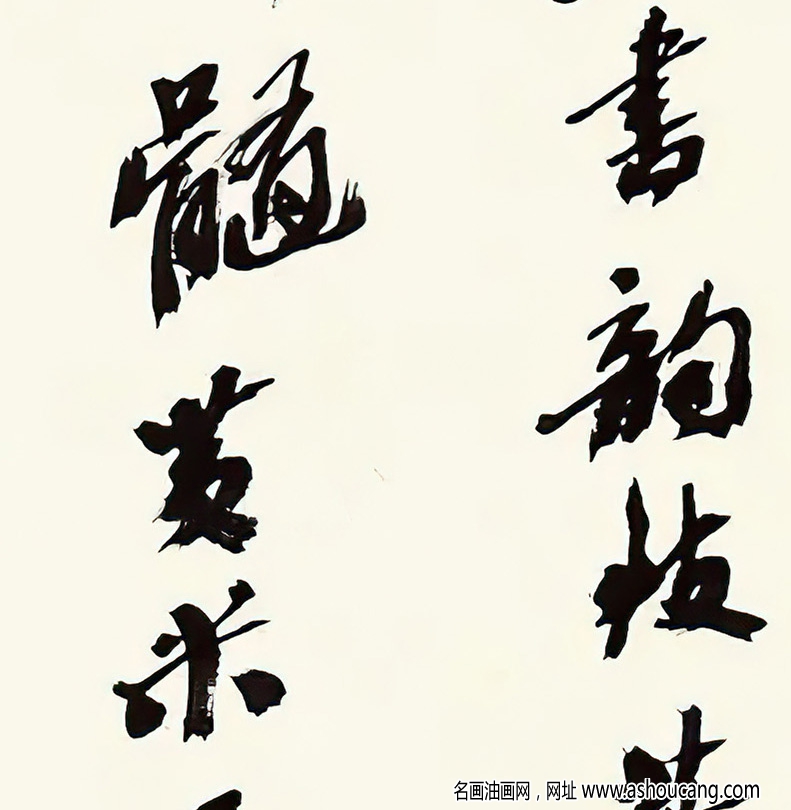 書韵技
髓黄米
名画油画网，网址 www.ashoucang.com